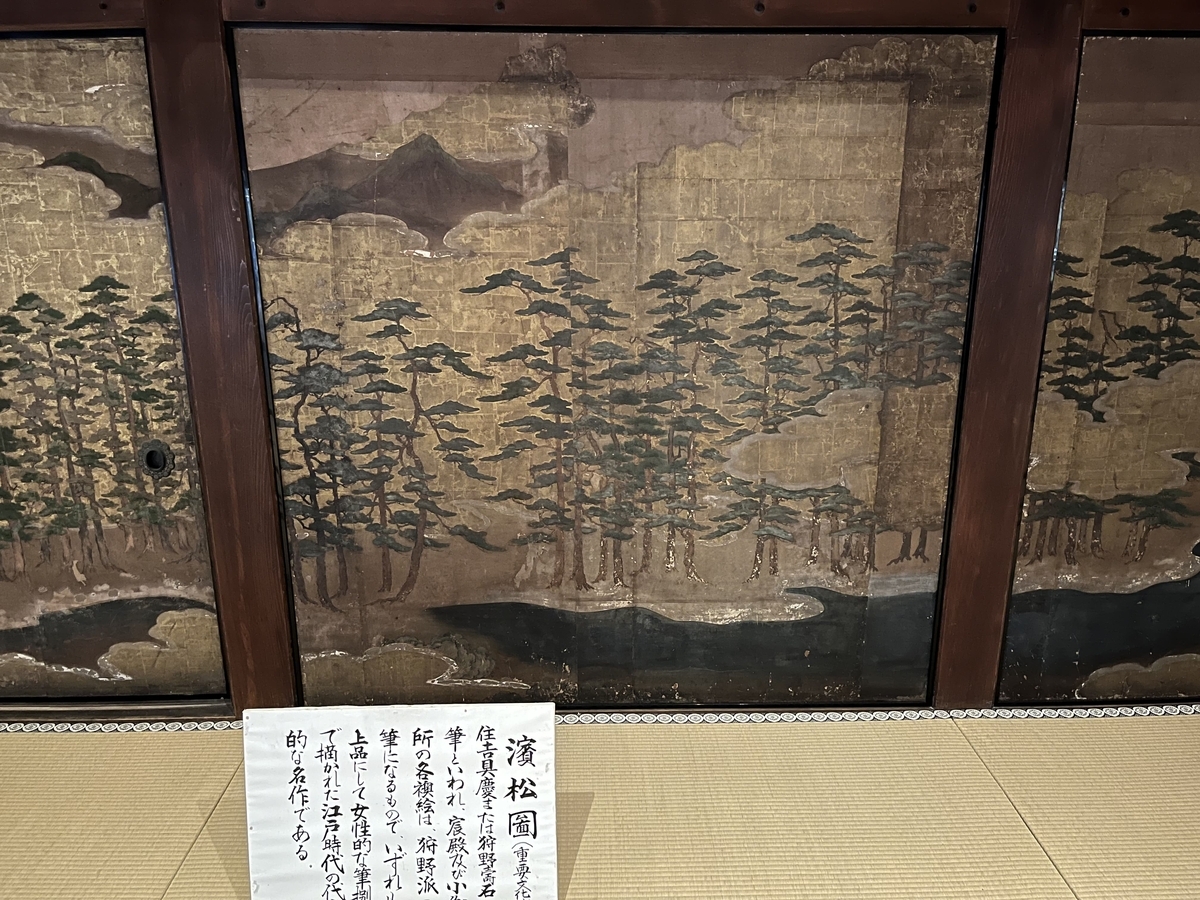 濱松圖(重要文化
住吉具慶または狩野壽石
筆といわれ、宸殿及び小
所の各襖絵は、狩野派
筆になるもので、いずれ
上品にして女性的な筆
で描かれた江戸時代の代
的な名作である。